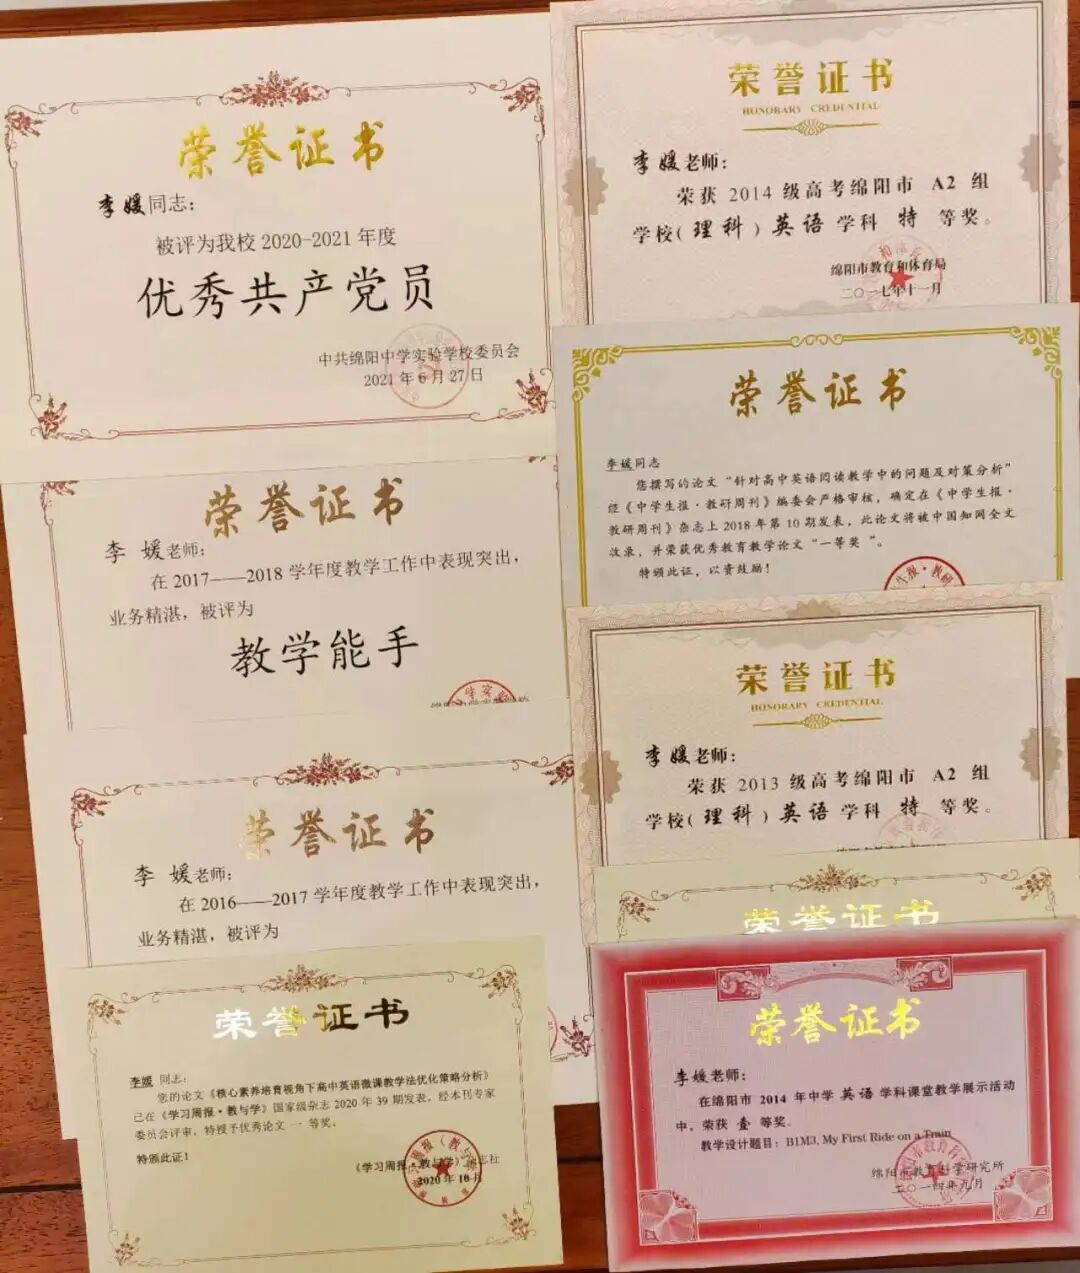 荣誉证书
李媛同志：
被评为我校 2020-2021 年度
优秀共产党员
中共绵阳中学实验学校委员会
2021 年 6 月 27 日
荣誉证书
李 媛老师：
在 2017——2018 学年度教学工作中表现突出，
业务精湛，被评为
教学能手
荣誉证书
李 媛老师：
在 2016——2017 学年度教学工作中表现突出，
业务精湛，被评为
荣誉证书
李媛 同志：
您的论文《核心素养培育视角下高中英语微课教学法优化策略分析》
已在《学习周报·教与学》国家级杂志 2020 年 39 期发表，经本刊专家
委员会评审，特授予优秀论文 一 等奖。
特颁此证！
《学习周报·教与学》杂志社
2020 年 10 月
荣誉证书
HONORARY CREDENTIAL
李媛老师：
荣获 2014 级高考绵阳市 A2 组
学校（理科）英语学科 特 等奖。
绵阳市教育和体育局
二〇一七年十一月
荣誉证书
李媛同志
您撰写的论文“针对高中英语阅读教学中的问题及对策分析”
经《中学生报·教研周刊》编委会严格审核，确定在《中学生报·
教研周刊》杂志上 2018 年第 10 期发表，此论文将被中国知网全文
收录，并荣获优秀教育教学论文“一等奖 ”。
特颁此证，以资鼓励！
荣誉证书
HONORARY CREDENTIAL
李媛老师：
荣获 2013 级高考绵阳市 A2 组
学校（理科）英语学科 特 等奖。
荣誉证书
荣誉证书
李媛老师：
在绵阳市 2014 年中学 英语 学科课堂教学展示活动
中，荣获 壹 等奖。
教学设计题目：B1M3, My First Ride on a Train
绵阳市教育科学研究所
二〇一四年九月